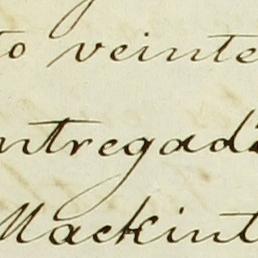 to veinte
ntregada
Mackint